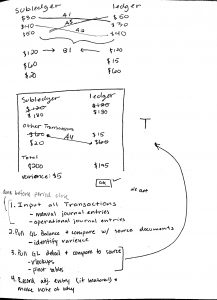 Subledger ledger
$30 A1 $50
$40 A3 $30
$50 A2 $40
$120 B1 $120
$60 $15
$20 $60
Subledger ledger
$120 $120
$180 $180
Other Transactions
$60 A4 $15
$20 $60
Total
$200 $195
variance: $5
OK
T
done before period close
1. Input all Transactions
- manual journal entries
- operational journal entries
2. Pull GL Balance & compare w/ source documents
- identify varience
3. Pull GL detail & compare to source
- vlookups
- pivot tables
4. Record adj. entry (if material) &
make note of why